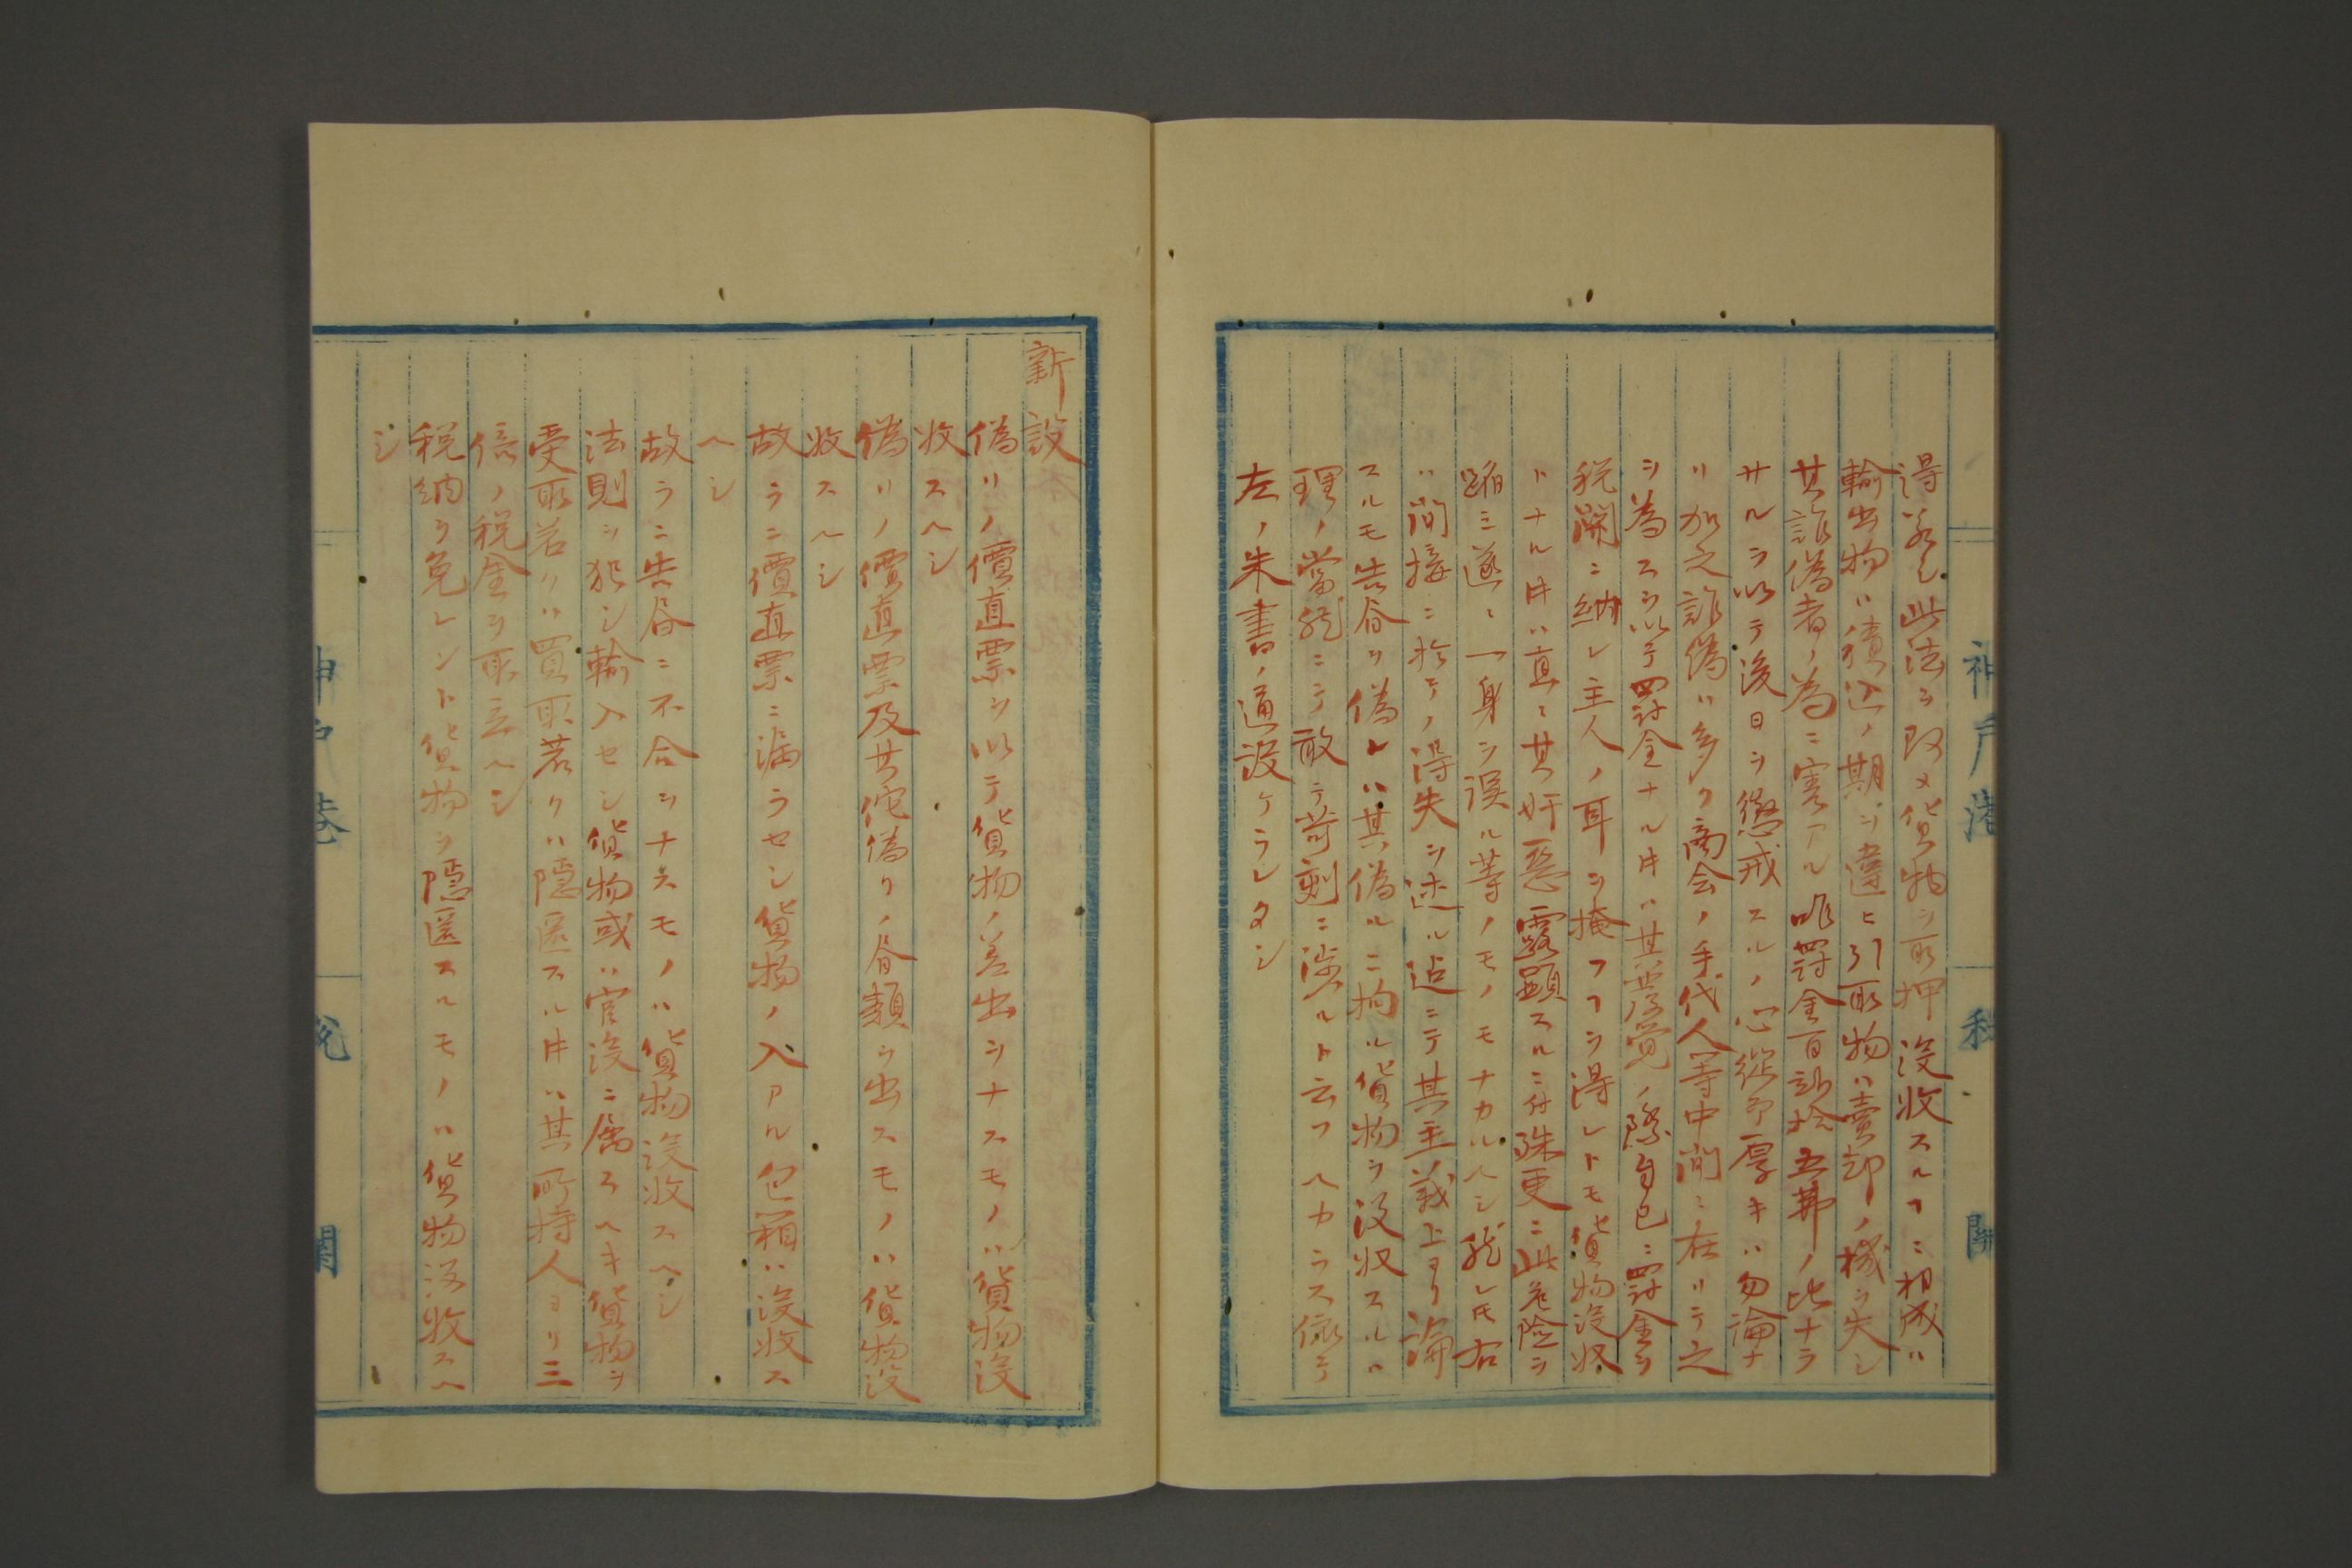 神戸港 税関
得若シ此法ヲ改メ貨物ヲ取押没收スルヿニ相成ハ
輸出物ハ積込ノ期ヲ違ヒ引取物ハ賣却ノ機ヲ失シ
其詐偽者ノ為ニ害アル唯罰金百弐拾五弗ノ比ナラ
サルヲ以テ後日ヲ懲戒スルノ心從テ厚キハ勿論ナ
リ加之詐偽ハ多ク商会ノ手代人等中間ニ在リテ之
ヲ為スヲ以テ罰金ナル𪜈ハ其発覚ノ際自己ニ罰金ヲ
税関ニ納レ主人ノ耳ヲ掩フヿヲ得レトモ貨物没収
トナル𪜈ハ直ニ其奸惡露顕スルニ付殊更ニ此危険ヲ
踏ミ遂ニ一身ヲ誤ル等ノモノモナカルヘシ然レ𪜈右
ハ間接ニ於テノ得失ヲ述ル迠ニテ其主義上ヨリ論
スルモ告書ヲ偽レハ其偽ルニ拘ル貨物ヲ没収スルハ
理ノ當然ニテ敢テ苛刻ニ渉ルト云フヘカラス依テ
左ノ朱書ノ通設ケラレタシ
新設
偽リノ價直票ヲ以テ貨物ノ差出ヲナスモノハ貨物没
收スヘシ
偽リノ價直票及其佗偽リノ書類ヲ出スモノハ貨物没
收スヘシ
故ラニ價直票ニ漏ラセシ貨物ノ入アル包箱ハ没收ス
ヘシ
故ラニ告書ニ不合ヲナスモノハ貨物没收スヘシ
法則ヲ犯シ輸入セシ貨物或ハ官没ニ属スヘキ貨物ヲ
受取若クハ買取若クハ隠匿スル𪜈ハ其所持人ヨリ三
倍ノ税金ヲ取立ヘシ
税納ヲ免レント貨物ヲ隠匿スルモノハ貨物没收スヘ
シ
神戸港 税関